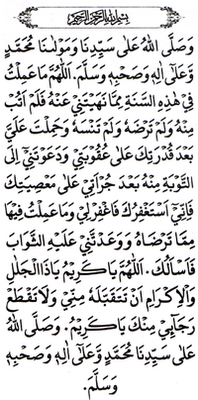 بِسْمِ اللهِ الرَّحْمٰنِ الرَّحِيْمِ
وَصَلَّى اللهُ عَلَى سَيِّدِنَا وَمَوْلَانَا مُحَمَّدٍ
وَّعَلَى اٰلِهِ وَصَحْبِهِ وَسَلَّمَ. اَللّٰهُمَّ مَا عَمِلْتُ
فِيْ هٰذِهِ السَّنَةِ مِمَّا نَهَيْتَنِيْ عَنْهُ فَلَمْ اَتُبْ
مِنْهُ وَلَمْ تَرْضَهُ وَلَمْ تَنْسَهُ وَحَلِمْتَ عَلَيَّ
بَعْدَ قُدْرَتِكَ عَلَى عُقُوْبَتِيْ وَدَعَوْتَنِيْ اِلَى
التَّوْبَةِ مِنْهُ بَعْدَ جُرْاَتِيْ عَلَى مَعْصِيَتِكَ
فَاِنِّيْ اَسْتَغْفِرُكَ فَاغْفِرْلِيْ وَمَا عَمِلْتُ فِيْهَا
مِمَّا تَرْضَاهُ وَوَعَدْتَنِيْ عَلَيْهِ الثَّوَابَ
فَاَسْأَلُكَ. اَللّٰهُمَّ يَا كَرِيْمُ يَا ذَا الْجَلَالِ
وَالْاِكْرَامِ اَنْ تَتَقَبَّلَهُ مِنِّيْ وَلَا تَقْطَعْ
رَجَائِيْ مِنْكَ يَا كَرِيْمُ. وَصَلَّى اللهُ
عَلَى سَيِّدِنَا مُحَمَّدٍ وَّعَلَى اٰلِهِ وَصَحْبِهِ
وَسَلَّمَ.